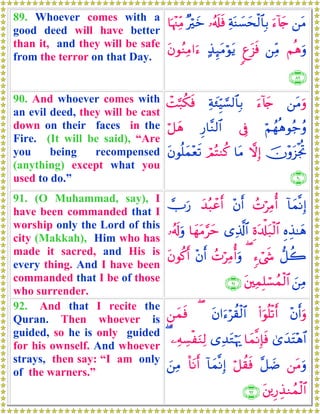 89. Whoever comes with a
good deed will have better
than it, and they will be safe
from the terror on that Day.
مَن جَآءَ بِٱلْحَسَنَةِ فَلَهُۥ خَيْرٌ مِّنْهَا
وَهُم مِّن فَزَعٍ يَوْمَئِذٍ ءَامِنُونَ
﴿٨٩﴾
90. And whoever comes with
an evil deed, they will be cast
down on their faces in the
Fire. (It will be said), “Are
you being recompensed
(anything) except what you
used to do.”
وَمَن جَآءَ بِٱلسَّيِّئَةِ فَكُبَّتْ
وُجُوهُهُمْ فِى ٱلنَّارِ هَلْ
تُجْزَوْنَ إِلَّا مَا كُنتُمْ تَعْمَلُونَ
﴿٩٠﴾
91. (O Muhammad, say), I
have been commanded that I
worship only the Lord of this
city (Makkah), Him who has
made it sacred, and His is
every thing. And I have been
commanded that I be of those
who surrender.
إِنَّمَآ أُمِرْتُ أَنْ أَعْبُدَ رَبَّ
هَٰذِهِ ٱلْبَلْدَةِ ٱلَّذِى حَرَّمَهَا وَلَهُۥ
كُلُّ شَىْءٍ ۖ وَأُمِرْتُ أَنْ أَكُونَ
مِنَ ٱلْمُسْلِمِينَ ﴿٩١﴾
92. And that I recite the
Quran. Then whoever is
guided, so he is only guided
for his ownself. And whoever
strays, then say: “I am only
of the warners.”
وَأَنْ أَتْلُوَا۟ ٱلْقُرْءَانَ ۖ فَمَنِ
ٱهْتَدَىٰ فَإِنَّمَا يَهْتَدِى لِنَفْسِهِۦ ۖ
وَمَن ضَلَّ فَقُلْ إِنَّمَآ أَنَا۠ مِنَ
ٱلْمُنذِرِينَ ﴿٩٢﴾